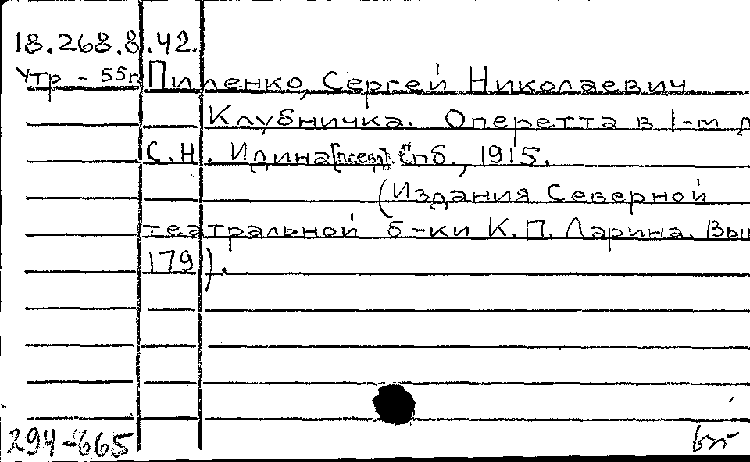 18.268.8.42.
Утр - 55г Пиленко, Сергей Николаевич
Клубничка. Оперетта в 1-м д
С.Н. Идина [псевд]. Спб., 1915.
(Издания Северной
театральной б-ки К.П. Ларина. Вып
179).
294-665